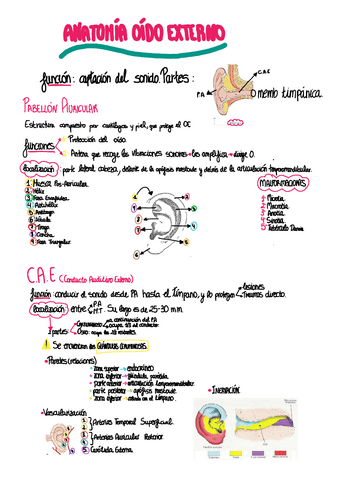 ANATOMÍA OÍDO EXTERNO
función: captación del sonido. Partes:
C.A.E
P.A
memb timpánica.
PABELLÓN AURICULAR
Estructura compuesta por cartílagos y piel, que protege el OE
funciones
Protección del oído.
Antena que recoge las vibraciones sonoras → las amplifica → dirige O.
localización: parte lateral cabeza, delante de la apófisis mastoide y detrás de la articulación temporomandibular.
1 Hueso Pre-Auricular.
2 Hélix
3 Fosa Escafoidea
4 Antihélix
5 Antitrago
6 Lóbulo
7 Trago
8 Concha
9 Fosa Triangular
MALFORMACIONES
1 Microtia
2 Macrotia
3 Anotia
4 Sinotia
5 Tubérculo Darwin
C.A.E (Conducto Auditivo Externo)
función: conducir el sonido desde PA hasta el tímpano, y lo protegen
lesiones
Traumas directo.
localización entre
P.A
M.T.
Su largo es de 25-30 mm.
2 partes
Cartilaginoso → continuación del PA
ocupa 1/3 del conducto
Óseo: ocupa los 2/3 restantes.
! Se encuentran las GLÁNDULAS CERUMINOSAS.
• Paredes (relaciones)
zona superior → endocráneo
zona inferior → glándula parótida
parte anterior → articulación temporomandibular
parte posterior → apófisis mastoide.
zona interior → celda en el tímpano.
• INERVACIÓN
• Vascularización
1
2
Arterias Temporal Superficial.
3
4
Arterias Auricular Posterior.
5 Carótida Externa.